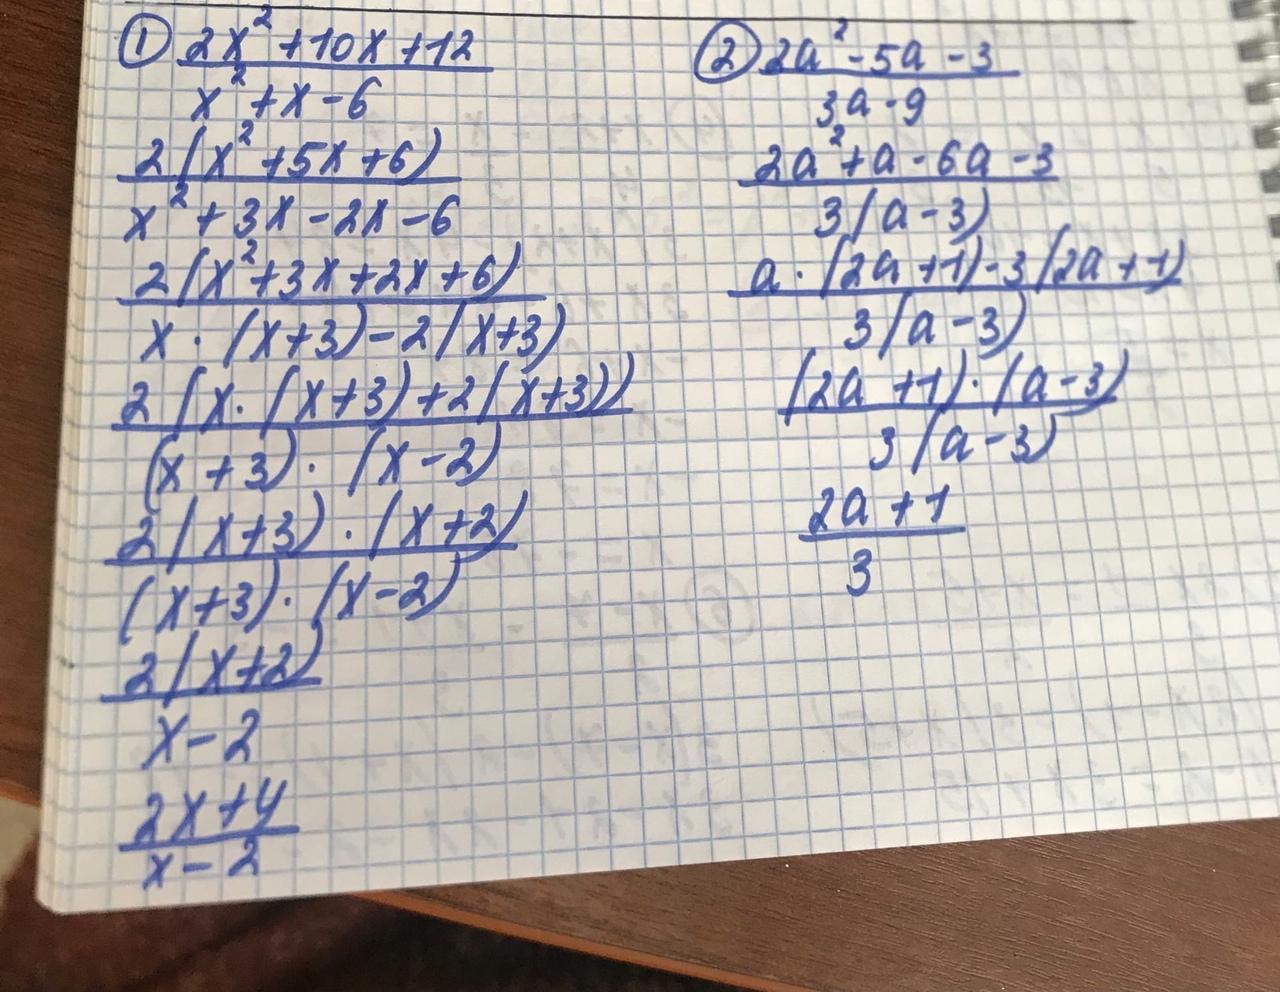 ① 2x² + 10x + 12
x² + x - 6
2(x² + 5x + 6)
x² + 3x - 2x - 6
2(x² + 3x + 2x + 6)
x · (x + 3) - 2(x + 3)
2(x · (x + 3) + 2(x + 3))
(x + 3) · (x - 2)
2(x + 3) · (x + 2)
(x + 3) · (x - 2)
2(x + 2)
x - 2
2x + 4
x - 2
② 2a² - 5a - 3
3a - 9
2a² + a - 6a - 3
3(a - 3)
a · (2a + 1) - 3(2a + 1)
3(a - 3)
(2a + 1) · (a - 3)
3(a - 3)
2a + 1
3